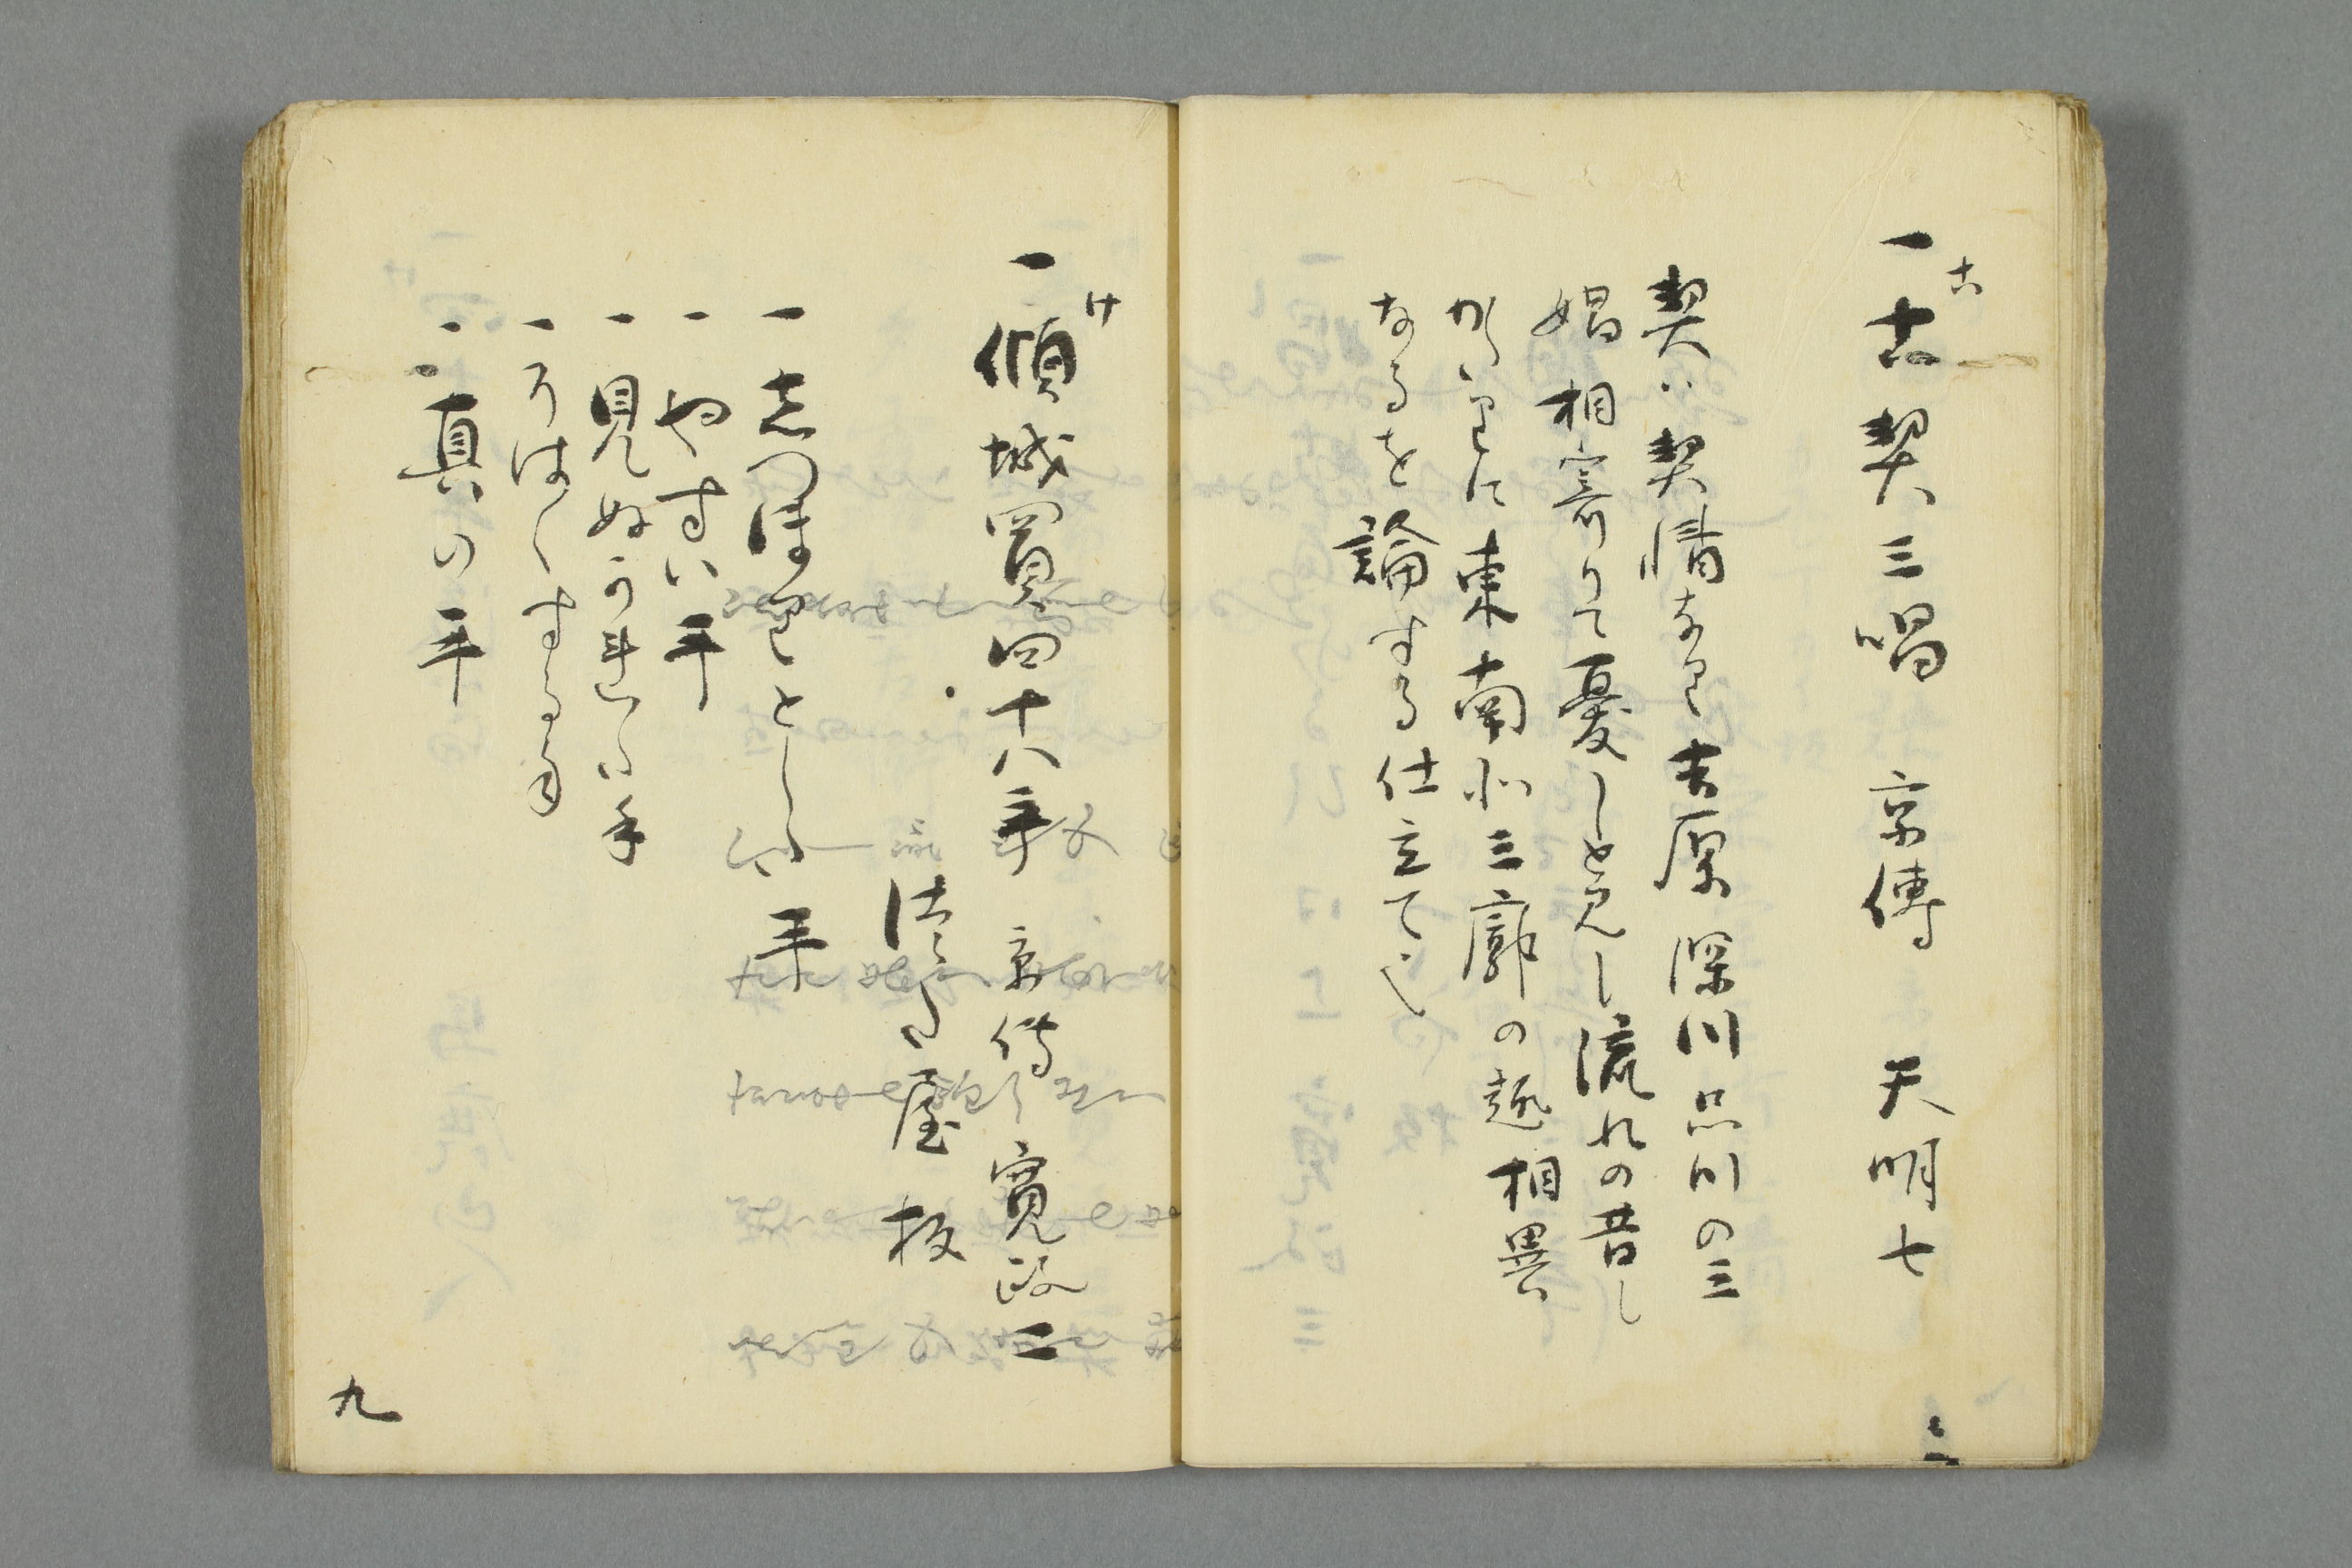 こ
一古契三唱　京傳　天明七
契ハ契情なり吉原深川品川の三
娼相寄りて憂しと見し流れの昔し
かたりに東南北三廓の趣相異
なるを論する仕立て也
け
一傾城買四十八手　京傳　寛政二
板
一志つほりとしい手
一やすい手
一見ぬかれい手
一そはくする手
一真の手
九